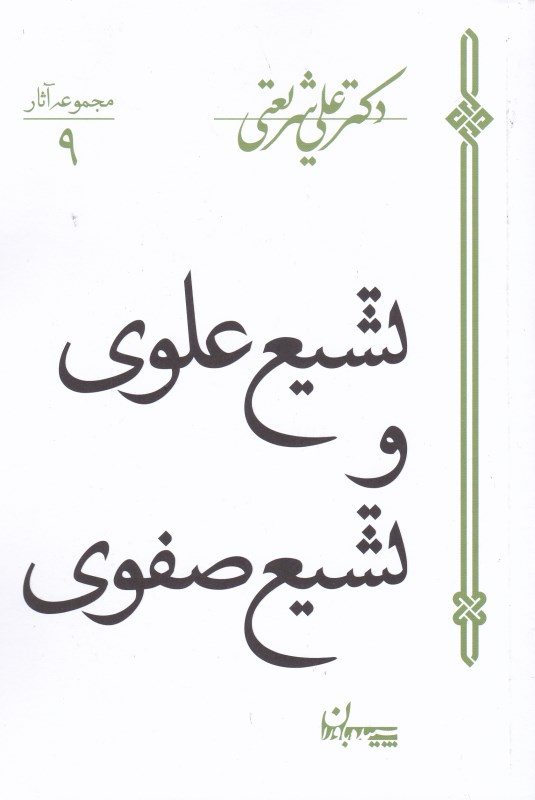 دکتر علی شریعتی
مجموعه آثار
۹
تشیع علوی
و
تشیع صفوی
سپیده باوران